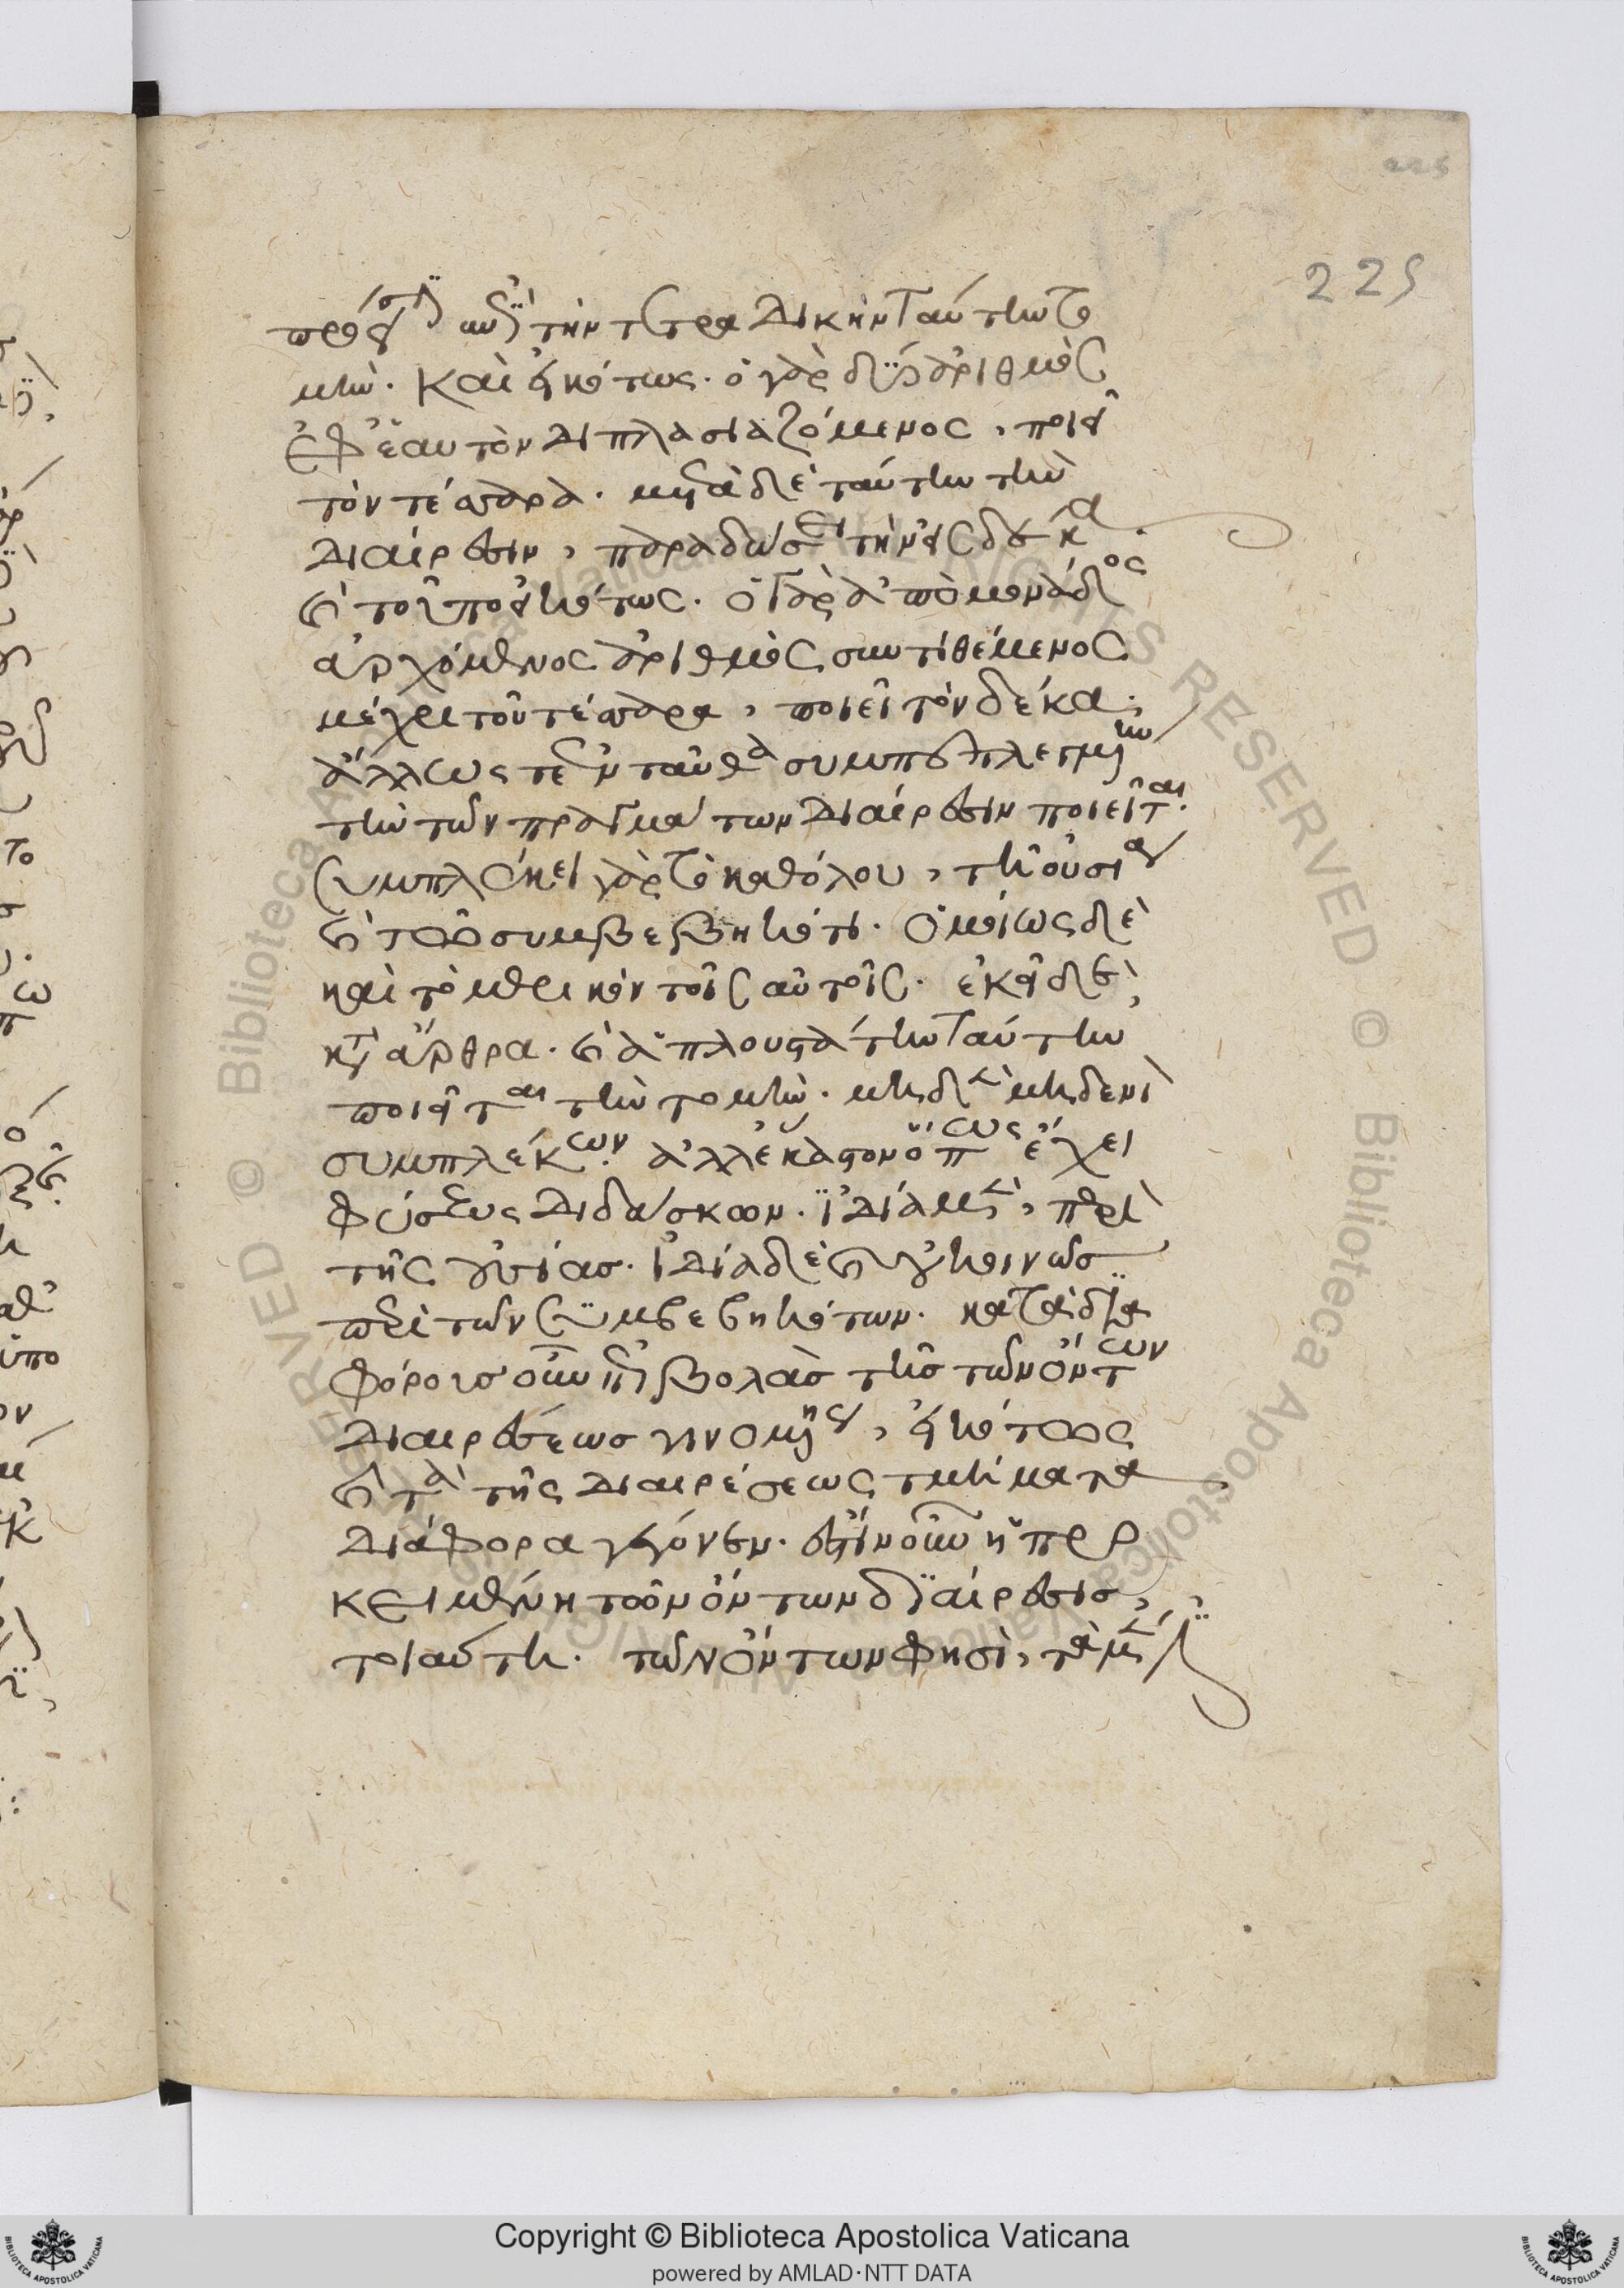 225
τὴν τετραδικὴν ταύτην το
μήν. καὶ εἰκότως. ὁ γὰρ δύο ἀριθμὸς
ἐφ' ἑαυτὸν διπλασιαζόμενος, ποιεῖ
τὸν τέσσαρα. μετὰ δὲ ταύτην τὴν
διαίρεσιν, παραδώσει τὴν εἰς δέκα.
καὶ τοῦτο εἰκότως. ὁ γὰρ ἀπὸ μονάδος
ἀρχόμενος ἀριθμὸς συντιθέμενος
μέχρι τοῦ τέσσαρα, ποιεῖ τὸν δέκα.
ἄλλως τε ἐνταῦθα συμπεπλεγμένην
τὴν τῶν πραγμάτων διαίρεσιν ποιεῖται.
συμπλέκει γὰρ τὸ καθόλου, τῆ οὐσία
καὶ τῶ συμβεβηκότι. ὁμοίως δὲ
καὶ τὸ μερικὸν τοῖς αὐτοῖς. ἐκεῖ δὲ,
κατ' ἄρθρα. καὶ ἁπλουστάτην ταύτην
ποιεῖται τὴν τομήν. μηδὲν μηδενὶ
συμπλέκων. ἀλλ' ἕκαστον ὅπως ἔχει
φύσεως διδάσκων. ἰδία μὲν, περὶ
τῆς οὐσίας. ἰδία δὲ καὶ οὐ κοινῶς
περὶ τῶν συμβεβηκότων. κατὰ δια
φόρους οὖν ἐπιβολὰς τῆς τῶν ὄντων
διαιρέσεως γινομένης, εἰκότως
καὶ τὰ τῆς διαιρέσεως τμήματα
διάφορα γέγονεν. ἔστιν οὖν ἡ προ
κειμένη τῶν ὄντων διαίρεσις,
τοιαύτη. τῶν ὄντων φησὶ, τὰ μὲν
Copyright © Biblioteca Apostolica Vaticana
powered by AMLAD·NTT DATA